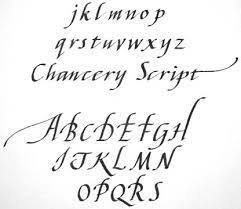 jklmnop
qrstuvwxyz
Chancery Script
ABCDEFGH
IJKLMN
OPQRS